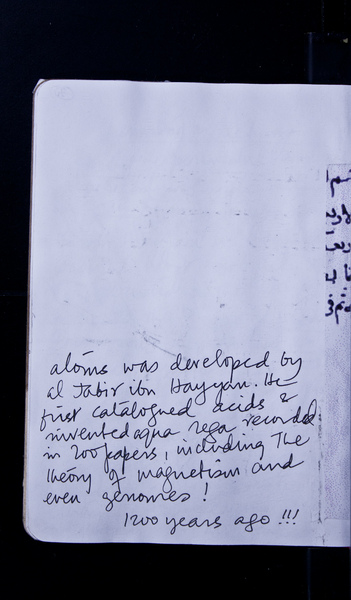 atoms was developed by
al Jabir ibn Hayyan. He
first catalogued acids &
invented aqua rega recorded
in 200 papers, including The
theory of magnetism and
even genomes!
1200 years ago!!!